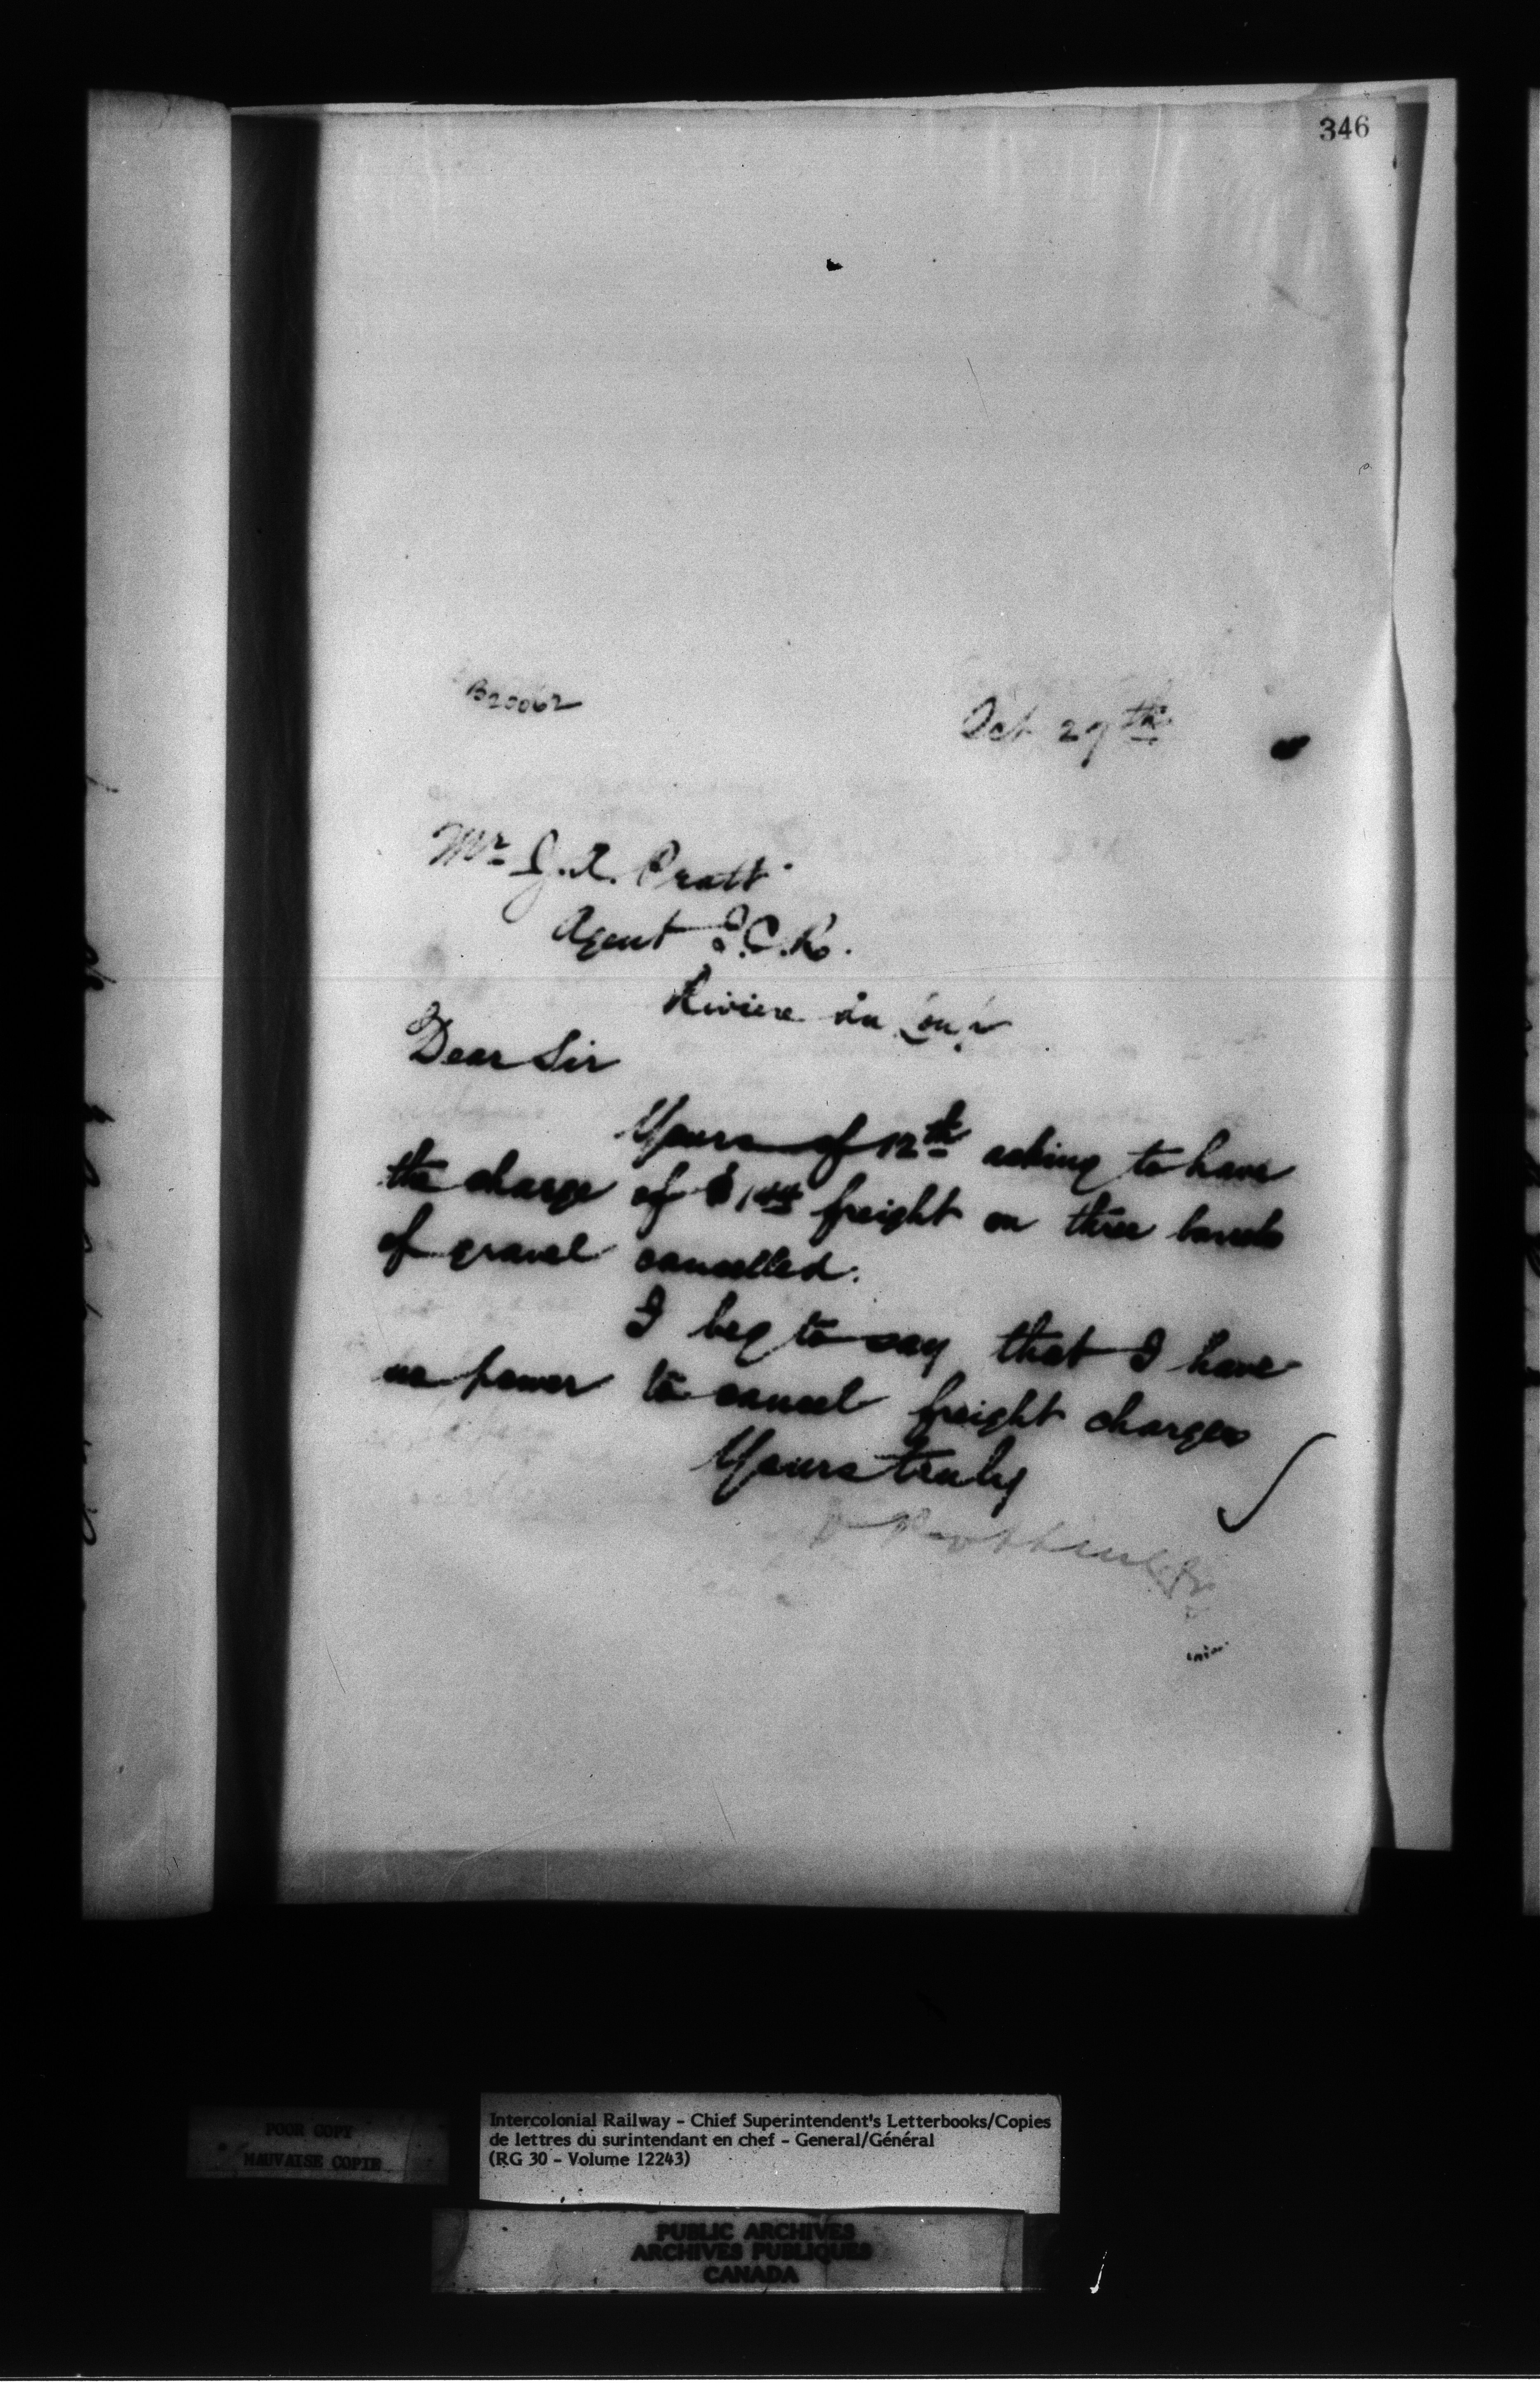 346
B20062
Oct 27th
Mr J.A. Pratt
Agent I.C.R.
Riviere du Loup
Dear Sir
Yours of 12th asking to have
the charge of $1.44 freight on three barrels
of gravel cancelled.
I beg to say that I have
no power to cancel freight charges
Yours truly
D Pottinger
POOR COPY
MAUVAISE COPIE
Intercolonial Railway - Chief Superintendent's Letterbooks/Copies
de lettres du surintendant en chef - General/Général
(RG 30 - Volume 12243)
PUBLIC ARCHIVES
ARCHIVES PUBLIQUES
CANADA